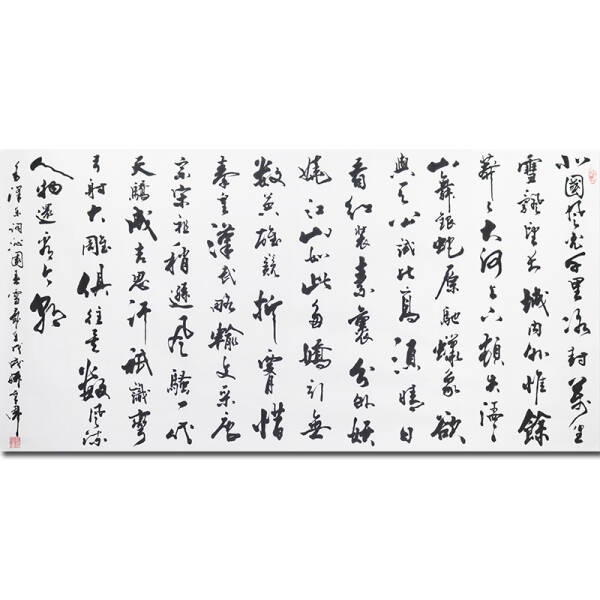 北國風光千里冰封萬里
雪飄望長城內外惟餘
莽々大河上下頓失滔々
山舞銀蛇原馳蠟象欲
與天公試比高須晴日
看紅裝素裹分外妖
嬈江山如此多嬌引無
數英雄競折腰惜
秦皇漢武略輸文采唐
宗宋祖稍遜風騷一代
天驕成吉思汗祇識彎
弓射大雕俱往矣數風流
人物還看今朝
毛澤東詞沁園春雪